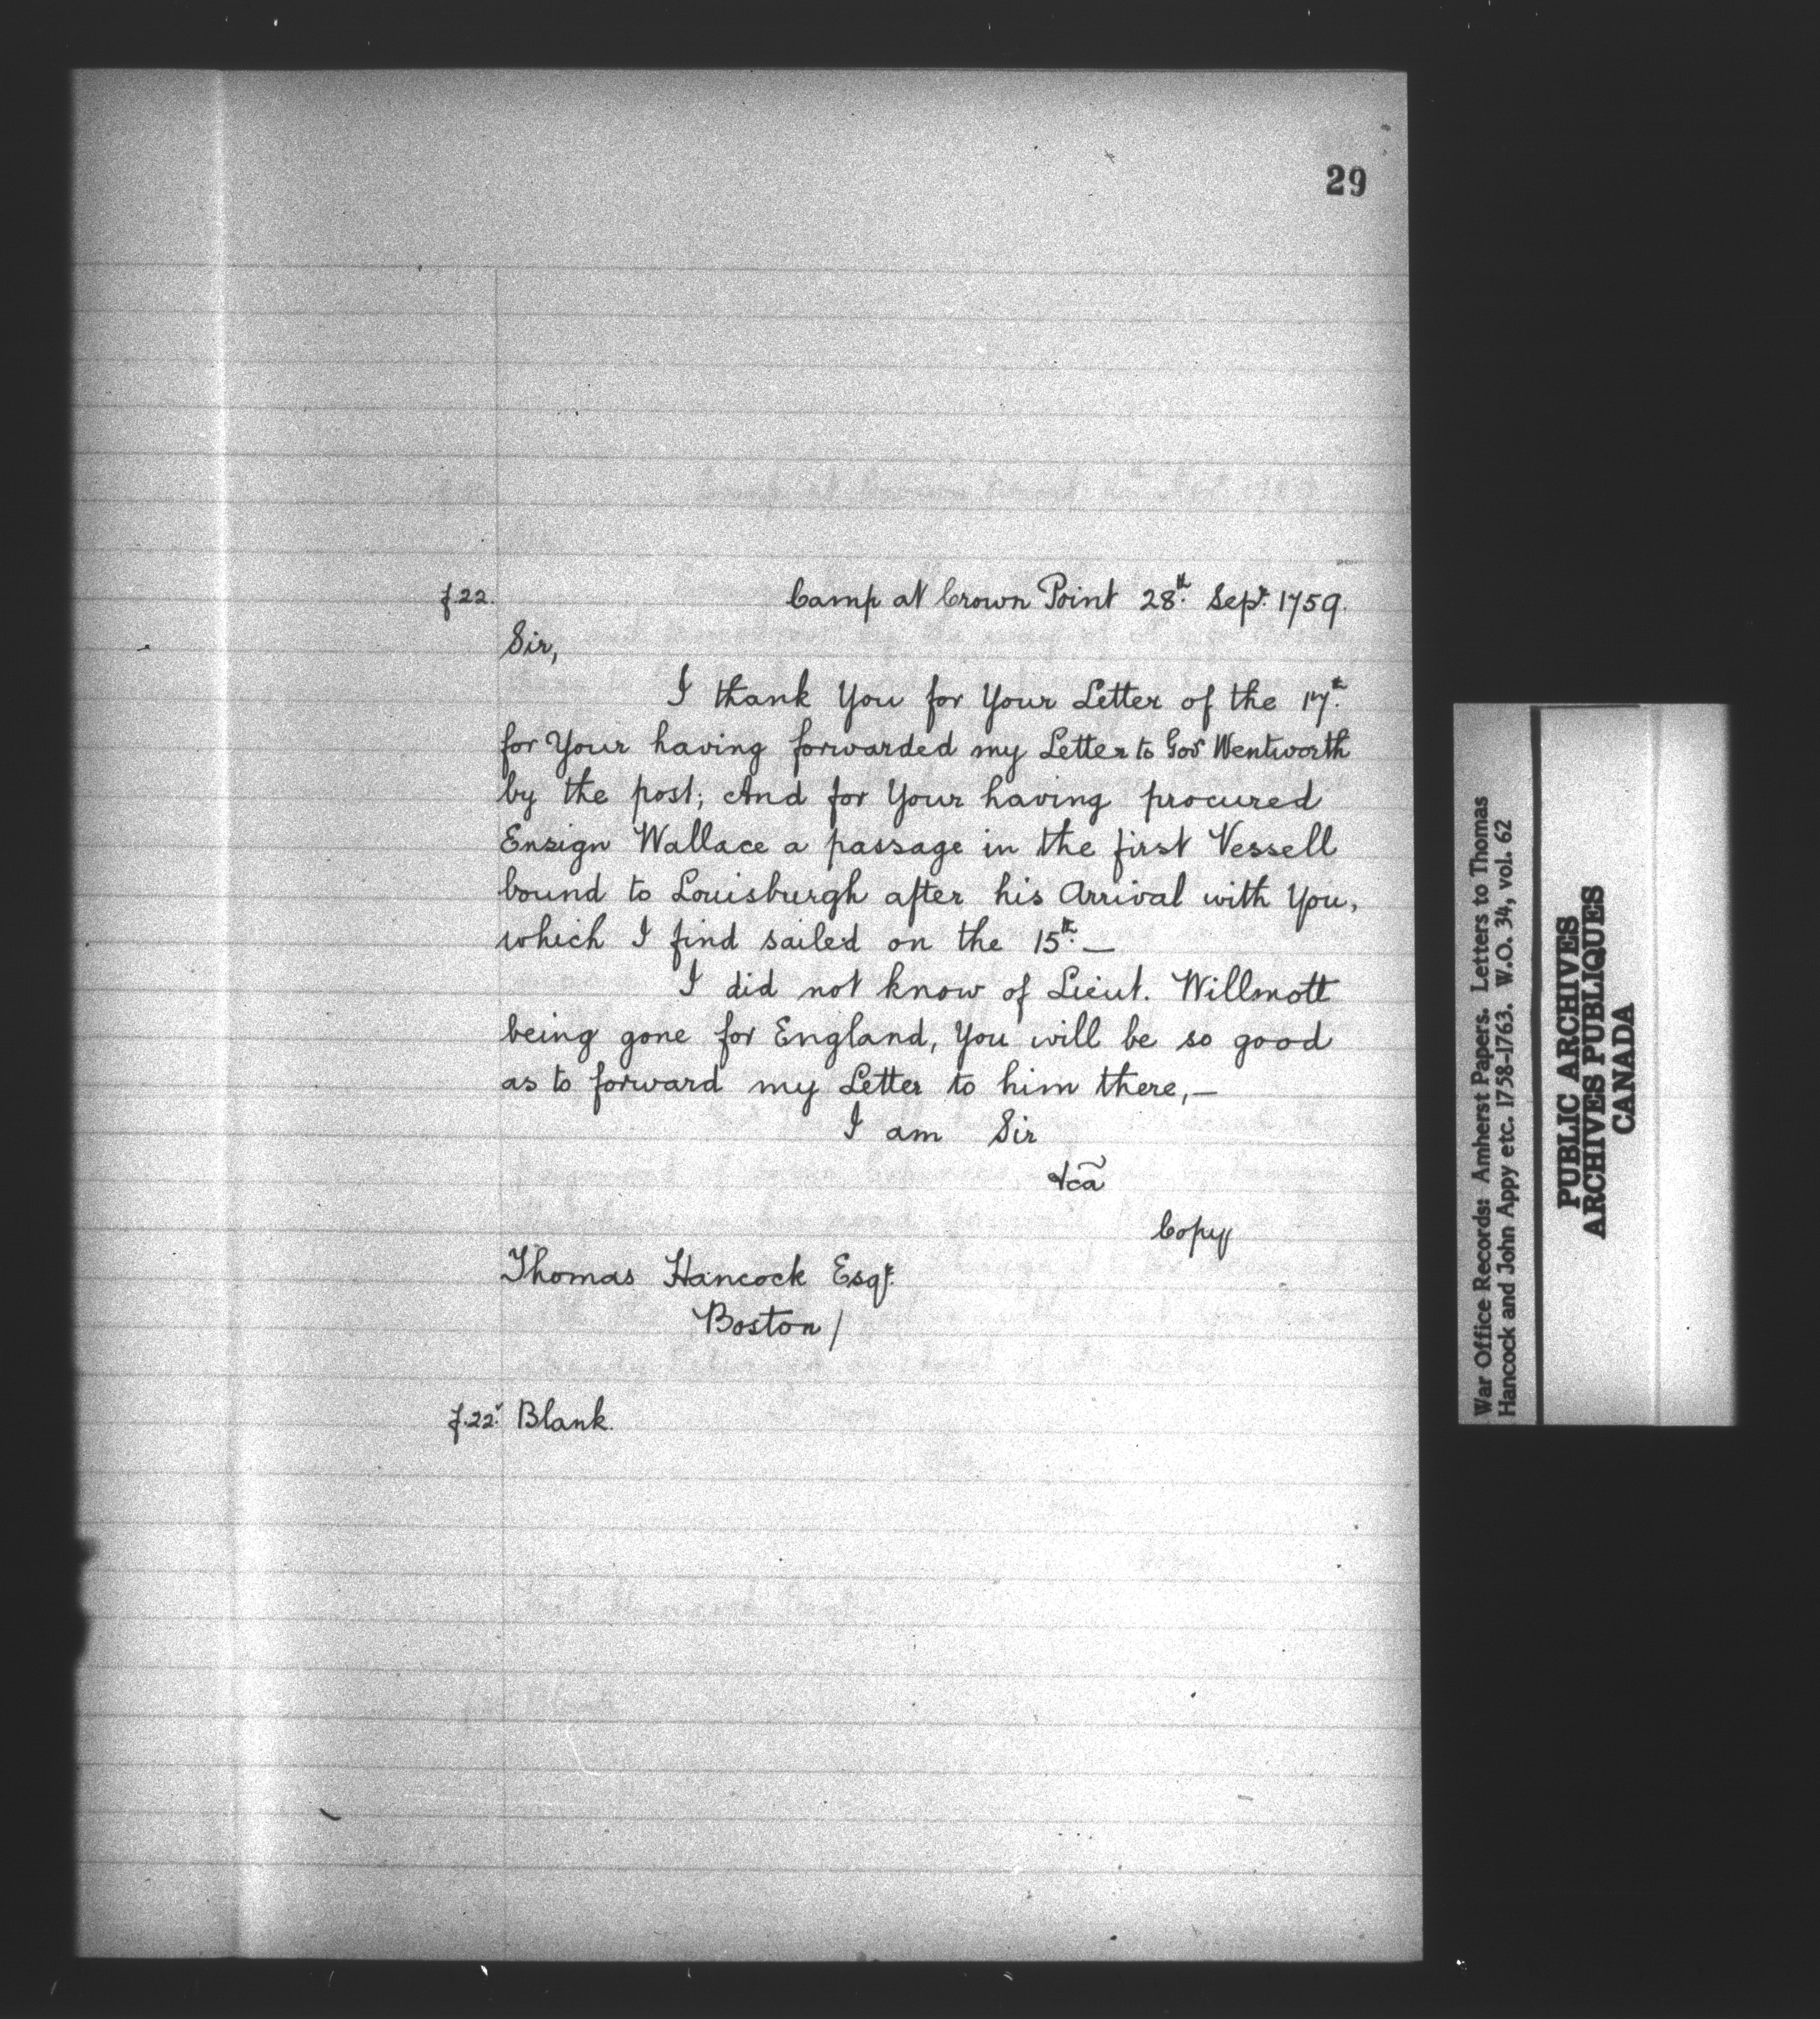 29
f.22.
Camp at Crown Point 28th. Sepr. 1759.
Sir,
I thank You for Your Letter of the 17th.
for Your having forwarded my Letter to Govr Wentworth
by the post; And for Your having procured
Ensign Wallace a passage in the first Vessell
bound to Louisburgh after his Arrival with You,
which I find sailed on the 15th. —
I did not know of Lieut. Willmott
being gone for England, You will be so good
as to forward my Letter to him there, —
I am Sir
&ca
Copy
Thomas Hancock Esqr.
Boston /
f.22v. Blank.
War Office Records: Amherst Papers. Letters to Thomas
Hancock and John Appy etc. 1758-1763. W.O. 34, vol. 62
PUBLIC ARCHIVES
ARCHIVES PUBLIQUES
CANADA